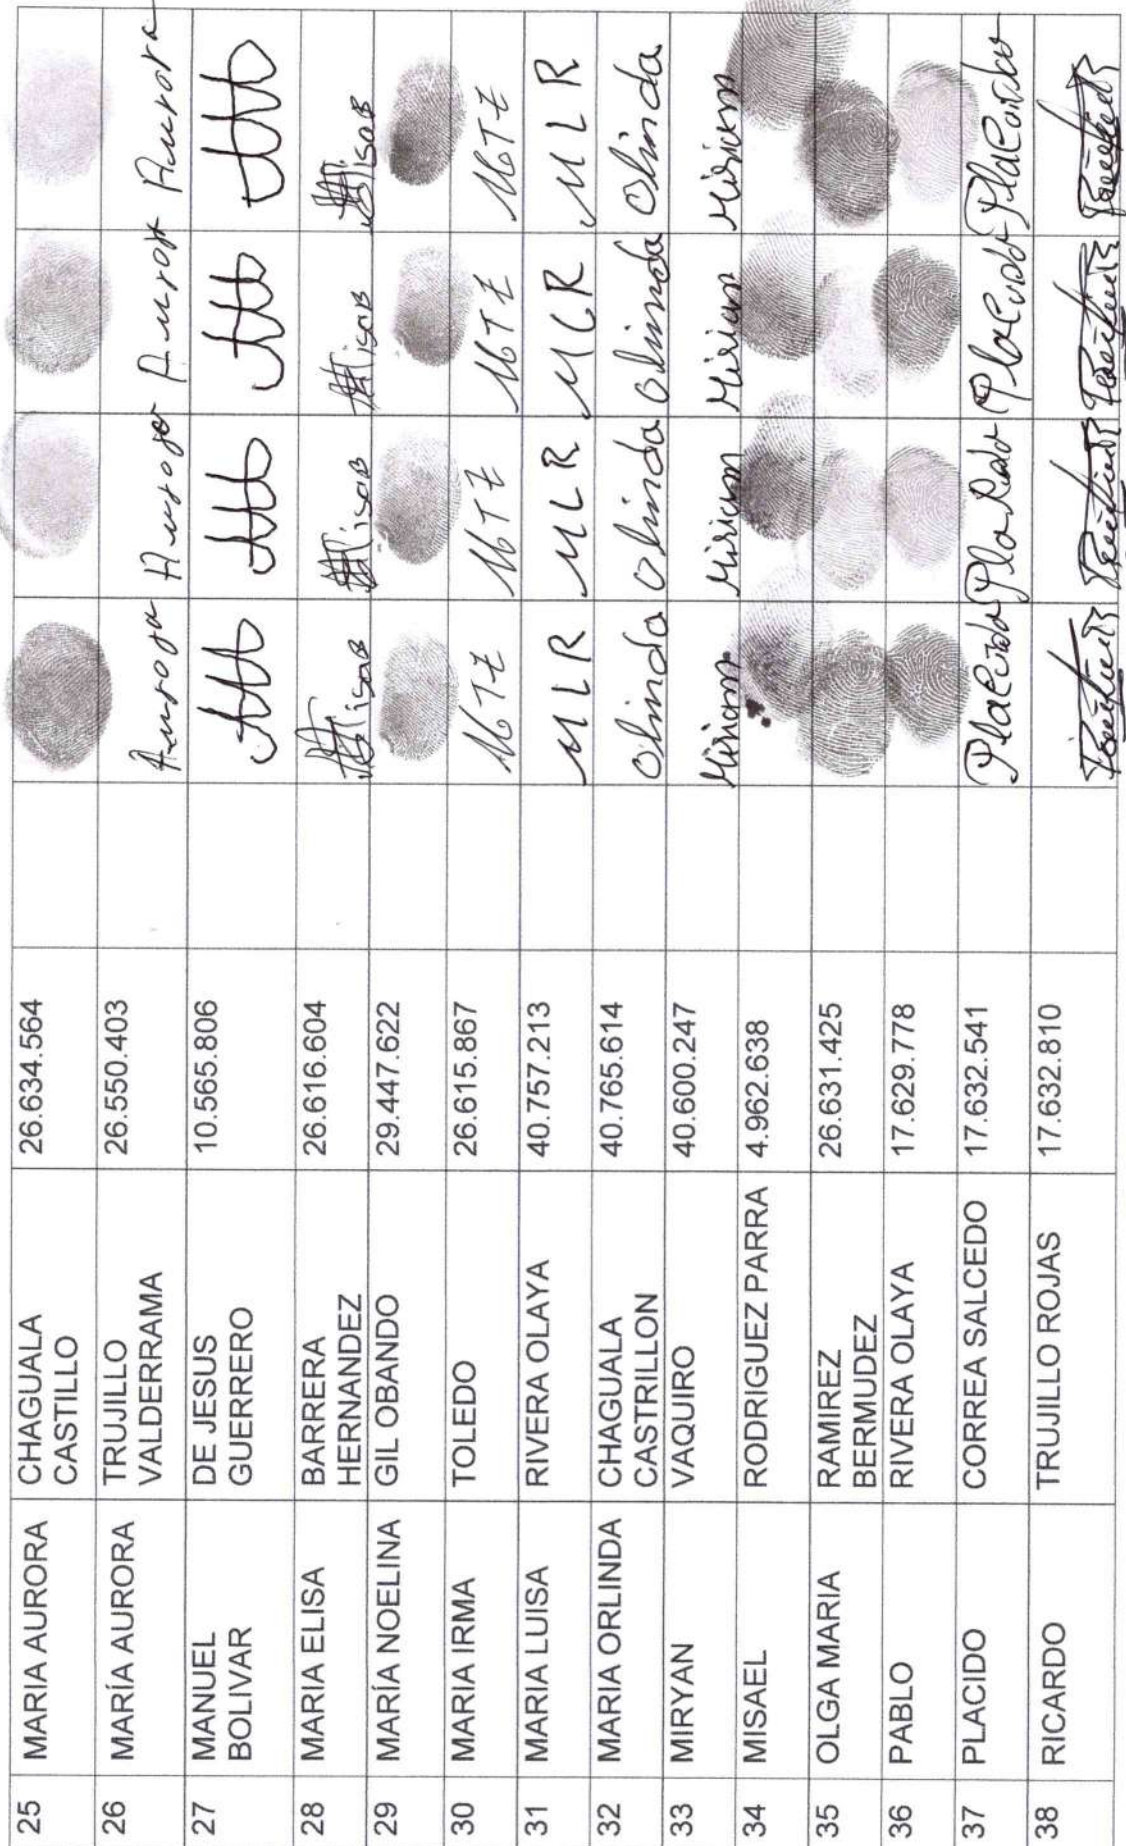 25 MARIA AURORA CHAGUALA CASTILLO 26.634.564
26 MARÍA AURORA TRUJILLO VALDERRAMA 26.550.403 Aurora
27 MANUEL BOLIVAR DE JESUS GUERRERO 10.565.806
28 MARIA ELISA BARRERA HERNANDEZ 26.616.604
29 MARÍA NOELINA GIL OBANDO 29.447.622
30 MARIA IRMA TOLEDO 26.615.867
31 MARIA LUISA RIVERA OLAYA 40.757.213 MLR MLR MLR MLR
32 MARIA ORLINDA CHAGUALA CASTRILLON 40.765.614 Olinda Olinda Olinda Olinda
33 MIRYAN VAQUIRO 40.600.247 Miriam Miriam Miriam Miriam
34 MISAEL RODRIGUEZ PARRA 4.962.638
35 OLGA MARIA RAMIREZ BERMUDEZ 26.631.425
36 PABLO RIVERA OLAYA 17.629.778
37 PLACIDO CORREA SALCEDO 17.632.541
38 RICARDO TRUJILLO ROJAS 17.632.810